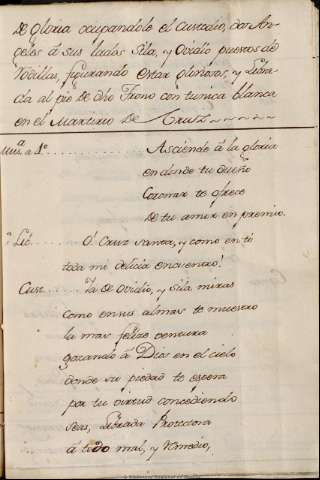 de gloria ocupandolo el Custodio, dos An-
geles â sus lados Sila, y Ovidio puestos de
rodillas, figurando estar gloriosos, y Libra-
da al pie de dho Trono con tunica blanca
en el Martirio de Cruz
Mus.ª a 4º Asciende â la gloria
en donde tu Dueño
Coronar te ofrece
de tu amor en premio.
Lib. O! Cruz Santa, y como en ti
toda mi delicia encuentro!
Cust. Ya â Ovidio, y Sila miras
como en sus almas te muestro
la mas felize ventura
gozando â Dios en el cielo
donde su piedad te espera
por tu virtud concediendo
seas, Librada Protectora
â todo mal, y remedio,